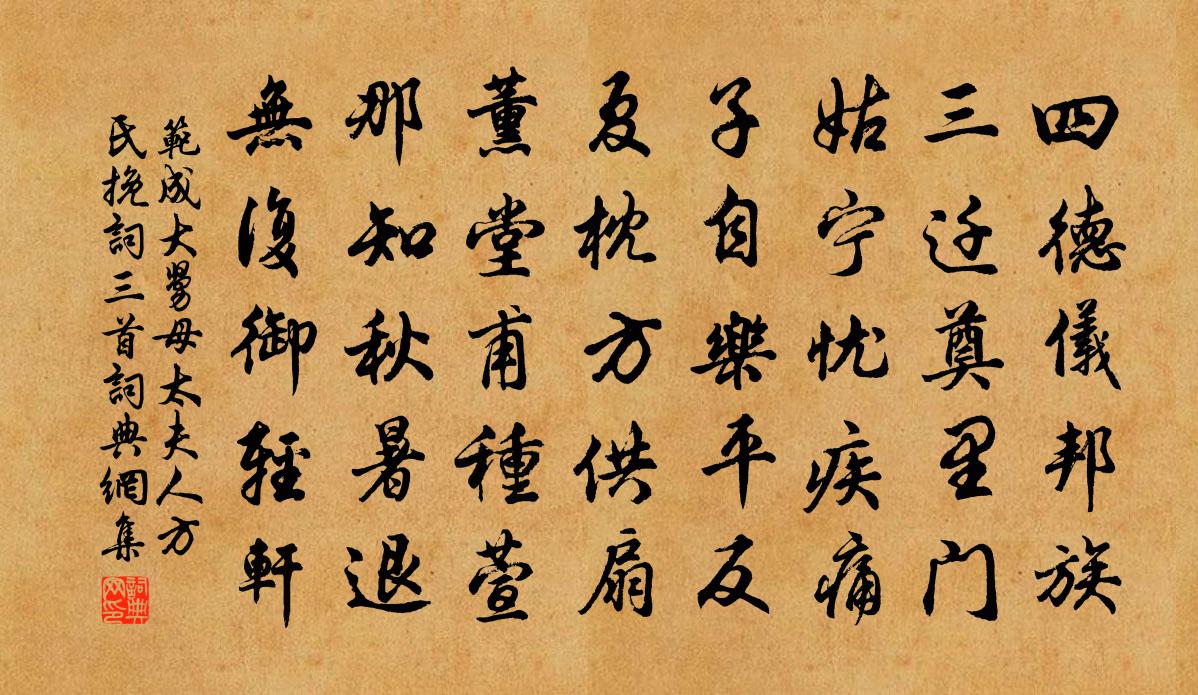 四德儀邦族
三迁奠里门
姑宁忧疾痛
子自樂平反
夏枕方供扇
薰堂甫種萱
那知秋暑退
無復御輕軒
範成大舅母太夫人方
氏挽詞三首詞典網集
詞典网印